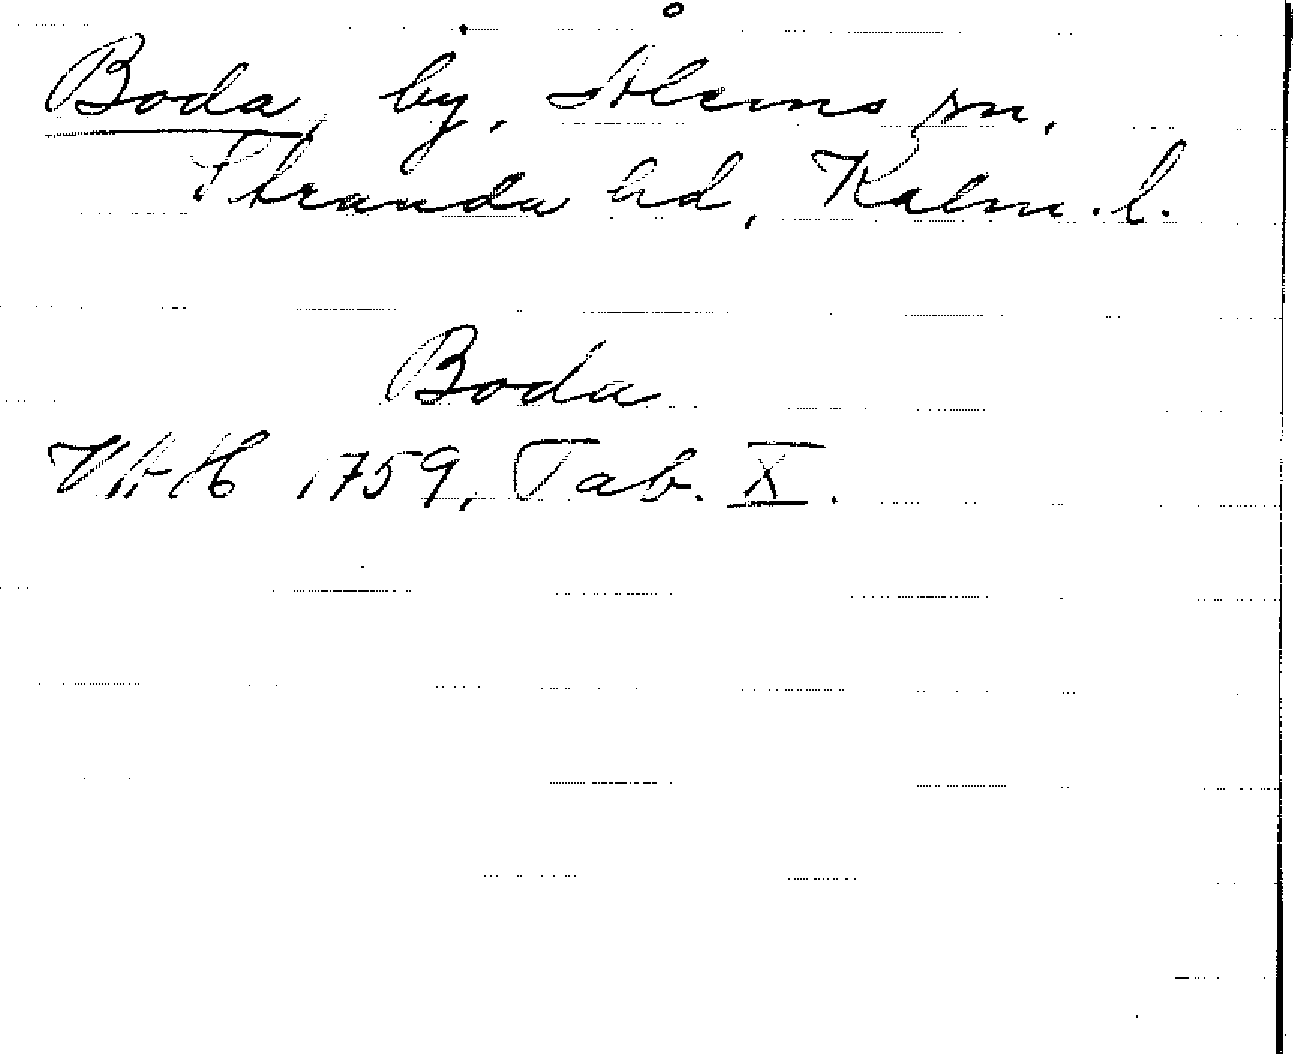 Boda, by, Ålems sn,
Stranda hd, Kalm. l.
Boda
VAH 1759, Tab. X.